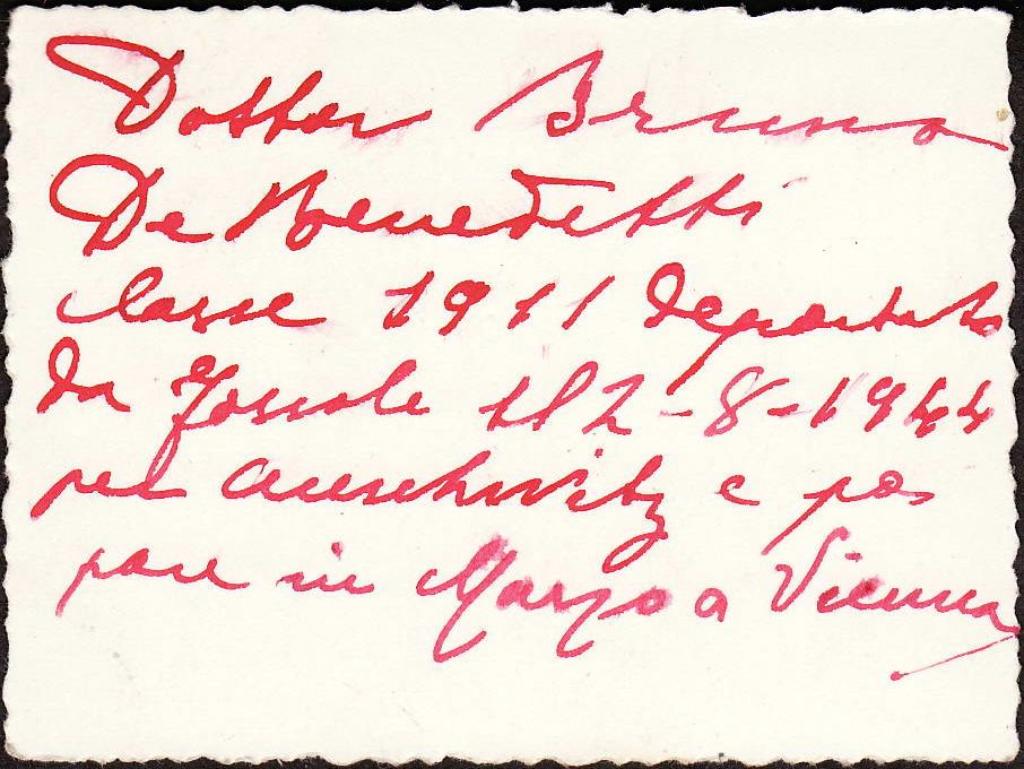 Dottor Bruno
De Benedetti
classe 1911 deportato
da Fossole il 2-8-1944
per Auschwitz e poi
pare in Marzo a Vienna